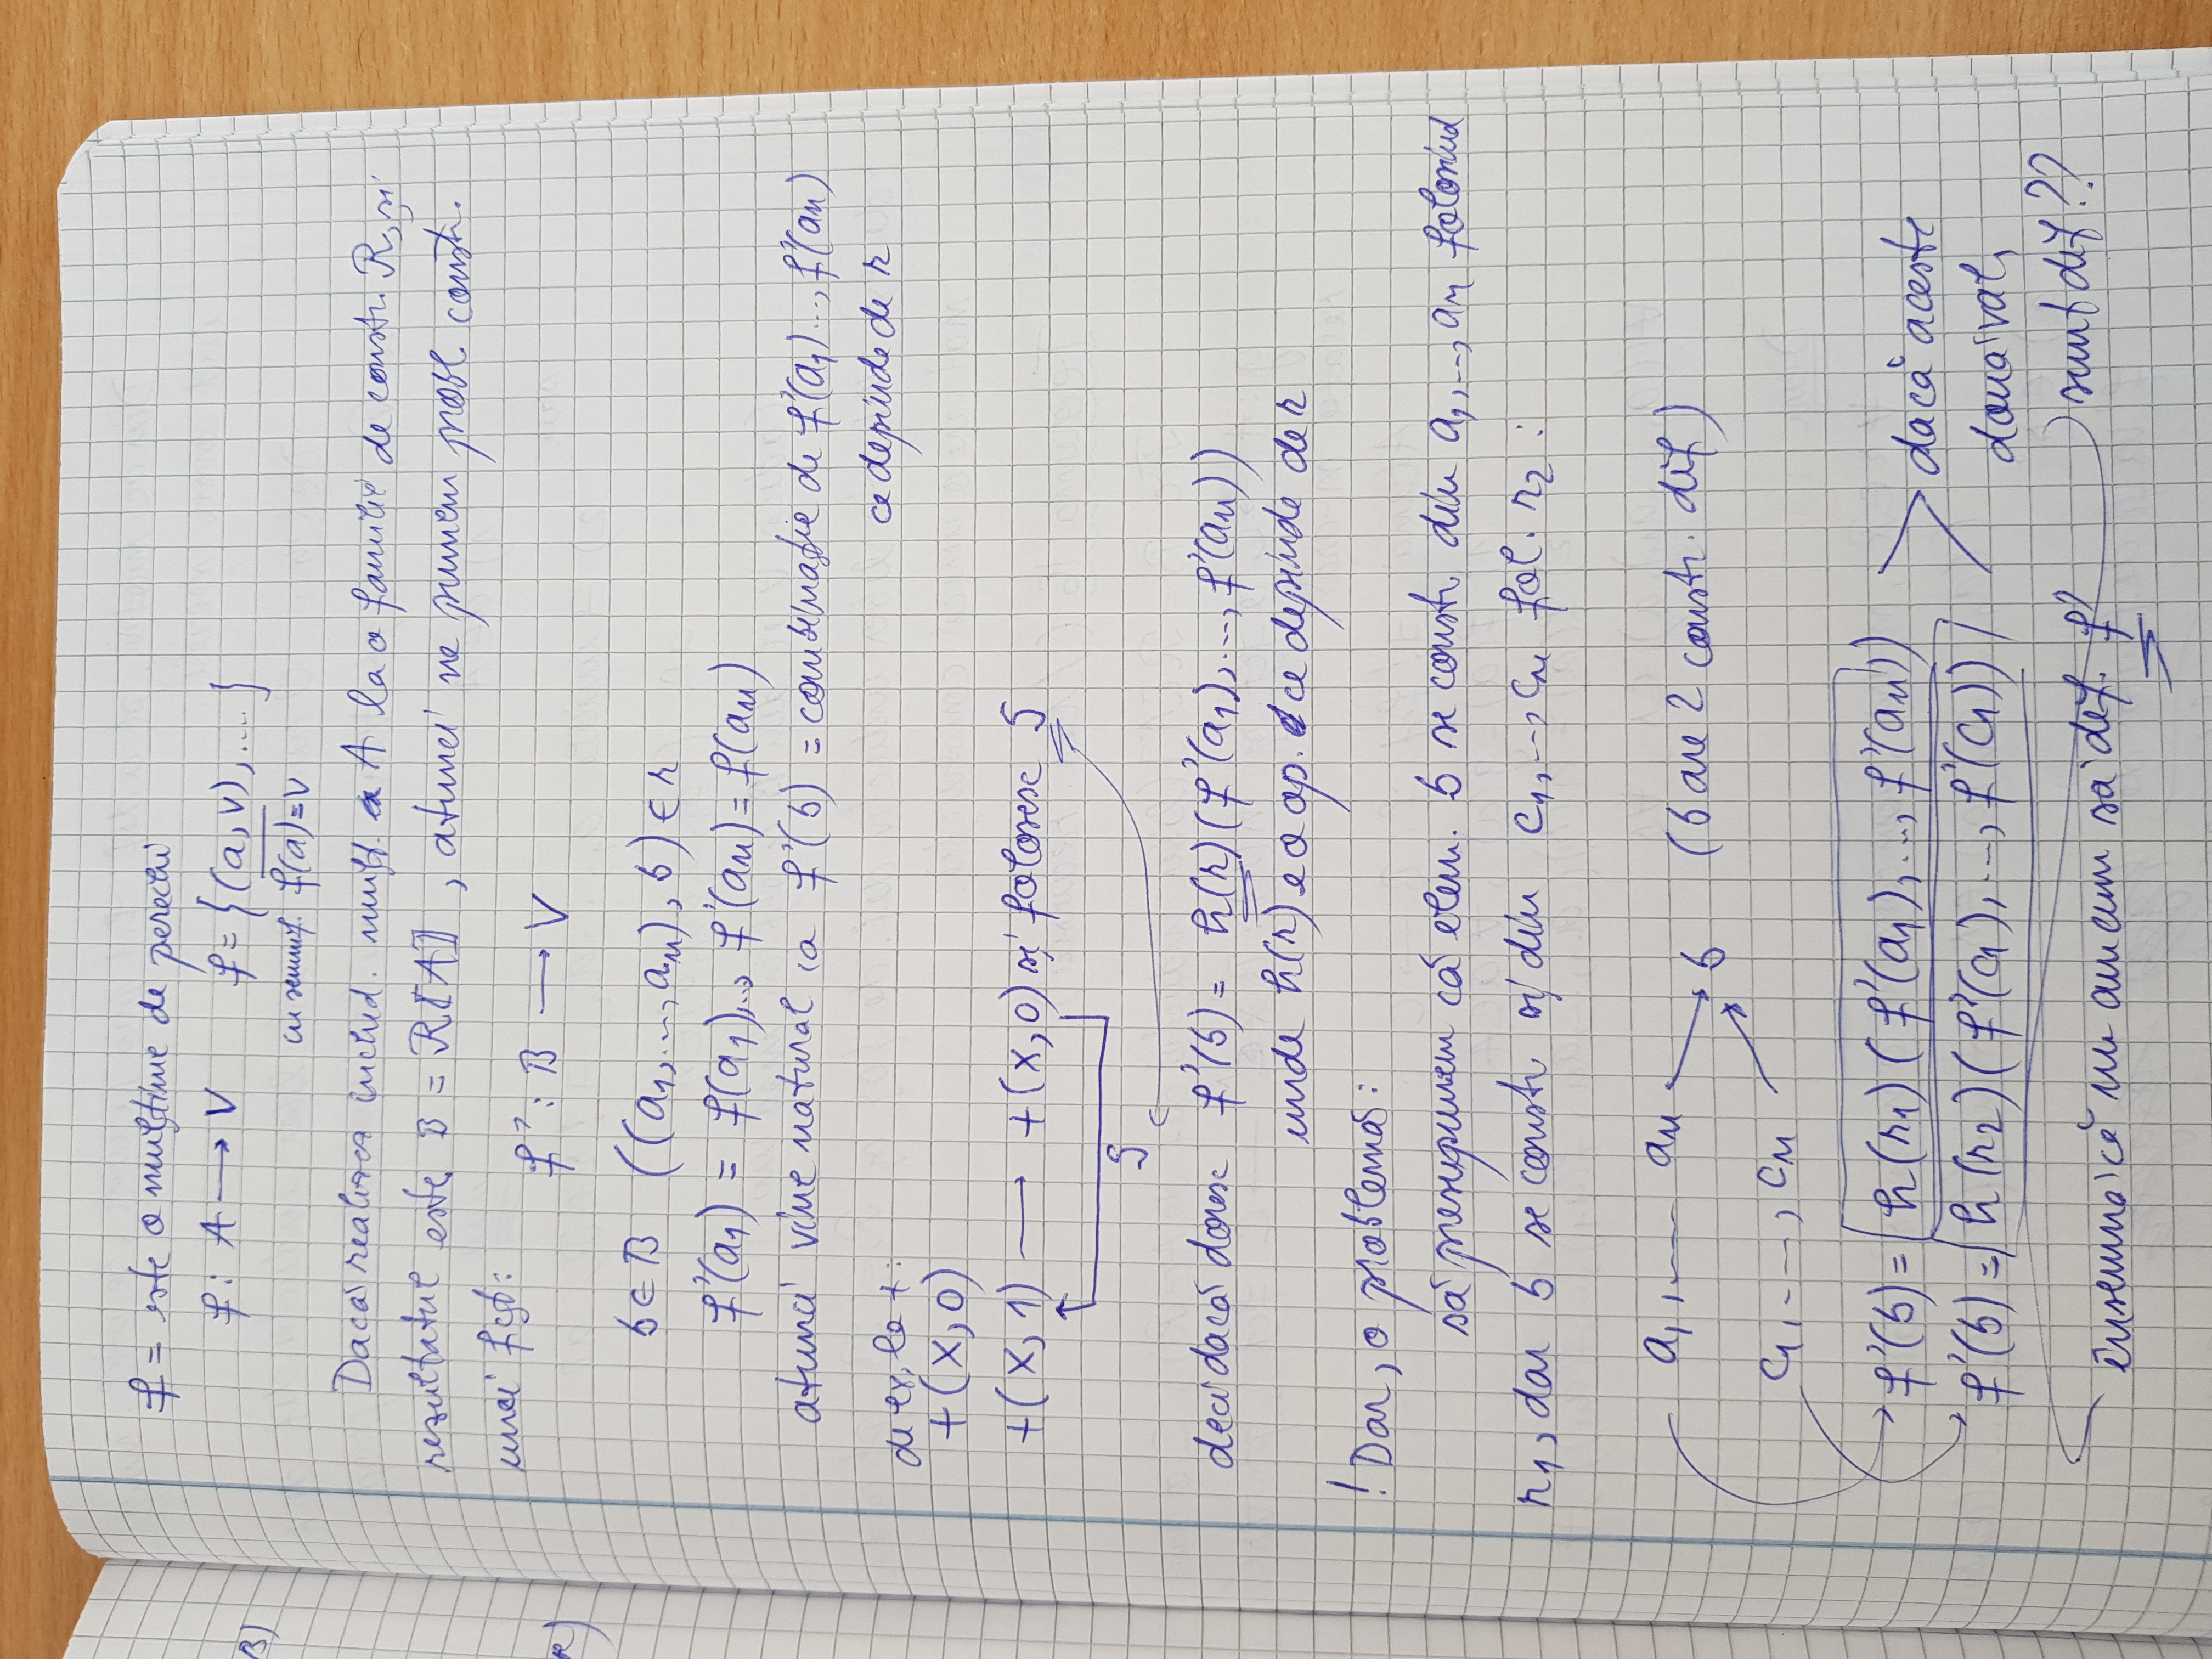 f = este o mulțime de perechi
f : A → V f = {(a, v), .... }
cu semnif. f(a) = v
Dacă realizez includ. mulț. A la o familie de constr. R, și
rezultatul este B = R[[A]], atunci ne punem probl. constr.
unei fcț:
f' : B → V
b ∈ B ((a1, ..., an), b) ∈ r
f'(a1) = f(a1), .., f'(an) = f(an)
atunci vine natural ca f'(b) = combinație de f'(a1) ..., f'(an)
ce depinde de r
de ex, la + :
+(x, 0)
+(x, 1) → +(x, 0) și folosesc S
S
deci dacă doresc f'(b) = h(r)(f'(a1), ..., f'(an))
unde h(r) e o op. ce depinde de r
! Dar, o problemă :
să presupunem că elem. b se constr. din a1, ..., an folosind
r1, dar b se constr. și din c1, .., cn fol. r2 :
a1, .... an
b (b are 2 constr. dif)
c1, ...., cn
f'(b) = h(r1)(f'(a1), ..., f'(an))
dacă aceste
f'(b) = h(r2)(f'(c1), ..., f'(c1))
două val,
sunt dif??
înseamnă că nu am cum să def. f'
B)